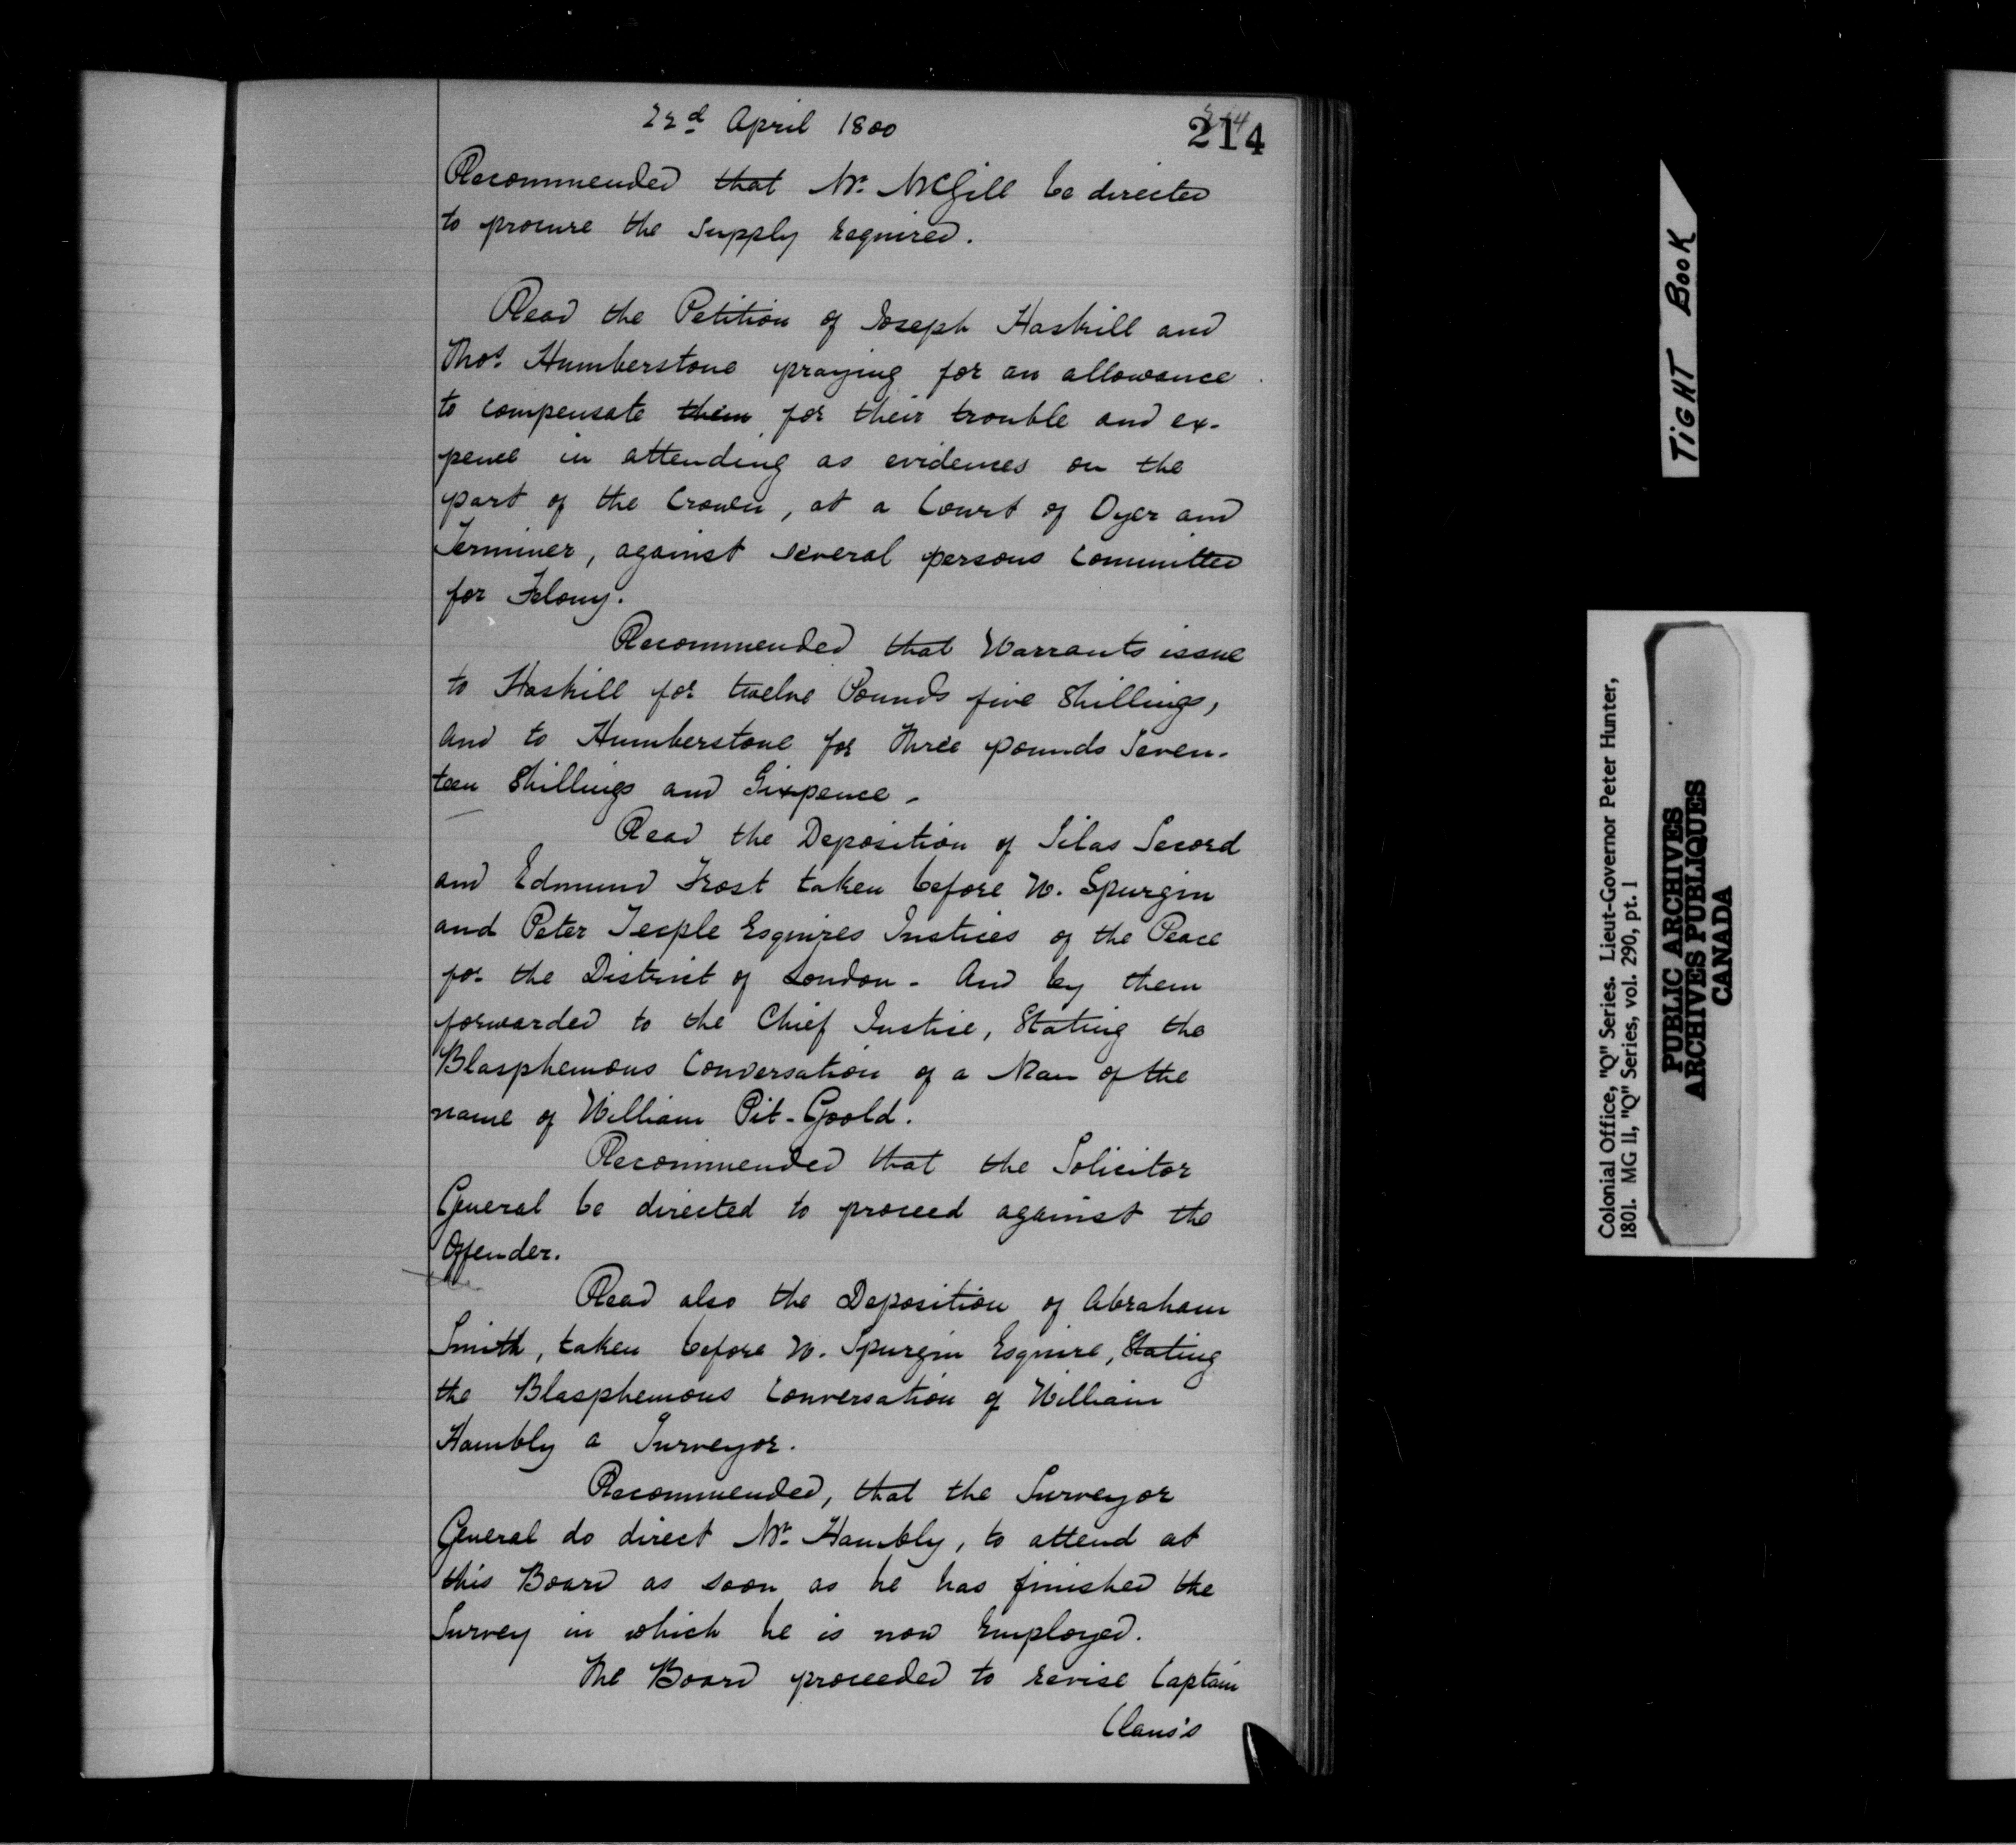 22d April 1800
214
214
Recommended that Mr. McGill be directed
to procure the supply required.
Read the Petition of Joseph Haskill and
Thos. Humberstone praying for an allowance
to compensate them for their trouble and ex-
pence in attending as evidences on the
part of the Crown, at a Court of Oyer and
Terminer, against several persons committed
for Felony.
Recommended that Warrants issue
to Haskill for twelve Pounds five Shillings,
and to Humberstone for Three pounds Seven-
teen Shillings and Sixpence -
Read the Deposition of Silas Secord
and Edmund Frost taken before W. Spurgin
and Peter Teeple Esquires Justices of the Peace
for the District of London - And by them
forwarded to the Chief Justice, Stating the
Blasphemous Conversation of a Man of the
name of William Pit-Goold.
Recommended that the Solicitor
General be directed to proceed against the
Offender.
Read also the Deposition of Abraham
Smith, taken before W. Spurgin Esquire, Stating
the Blasphemous Conversation of William
Hambly a Surveyor.
Recommended, that the Surveyor
General do direct Mr. Hambly, to attend at
this Board as soon as he has finished the
Survey in which he is now Employed.
The Board proceeded to revise Captain
Claus's
TIGHT BOOK
Colonial Office, "Q" Series. Lieut-Governor Peter Hunter,
1801. MG 11, "Q" Series, vol. 290, pt. 1
PUBLIC ARCHIVES
ARCHIVES PUBLIQUES
CANADA